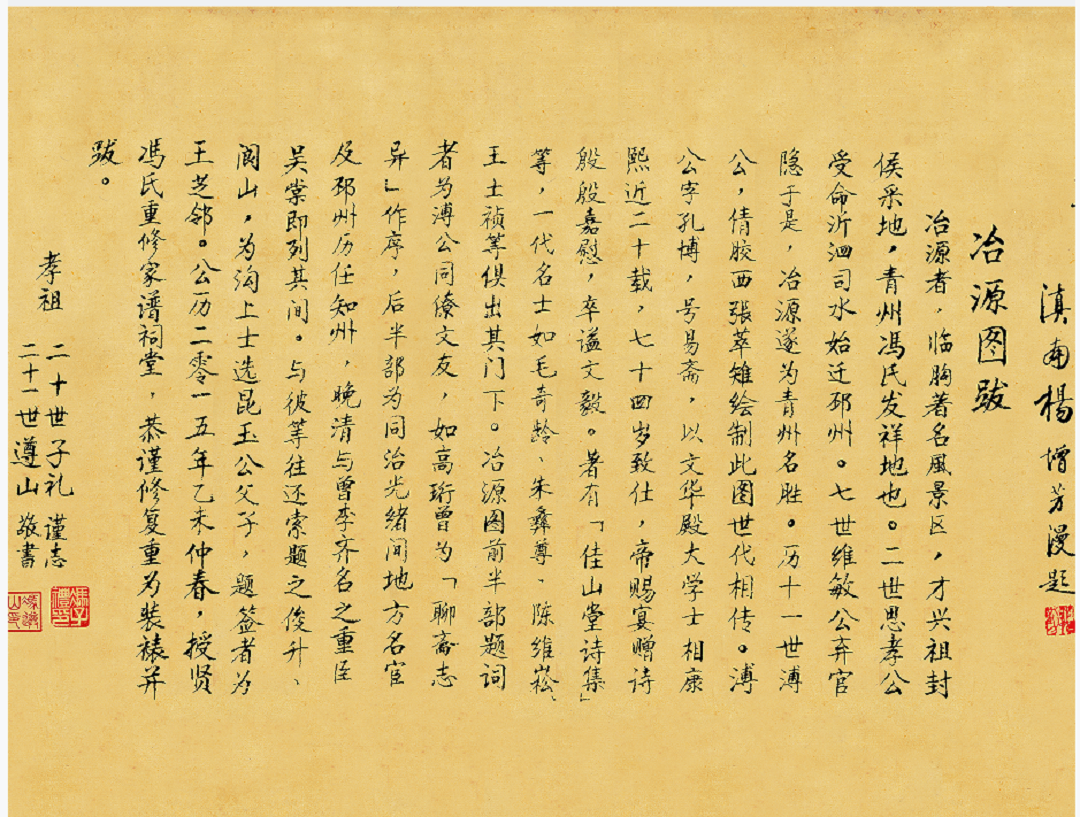 滇南杨增芳漫题
冶源图跋
冶源者，临朐著名風景区，才兴祖封
侯采地，青州馮氏发祥地也。二世思孝公
受命沂泗司水始迁邳州。七世维敏公弃官
隐于是，冶源遂为青州名胜。历十一世溥
公，倩胶西張萃雉绘制此图世代相传。溥
公字孔博，号易斋，以文华殿大学士相康
熙近二十载，七十四岁致仕，帝赐宴赠诗
殷殷嘉慰，卒谥文毅。著有「佳山堂诗集」
等，一代名士如毛奇龄、朱彝尊、陈维崧、
王士祯等俱出其门下。冶源图前半部题词
者为溥公同僚文友，如高珩曾为「聊斋志
异」作序，后半部为同治光绪间地方名宦
及邳州历任知州，晚清与曾李齐名之重臣
吴棠即列其间。与彼等往还索题之俊升、
阆山，为沟上士选昆玉公父子，题签者为
王芝邻。公历二零一五年乙未仲春，授贤
馮氏重修家谱祠堂，恭谨修复重为装裱并
跋。
孝祖
二十世子礼 谨志
二十一世遵山 敬書